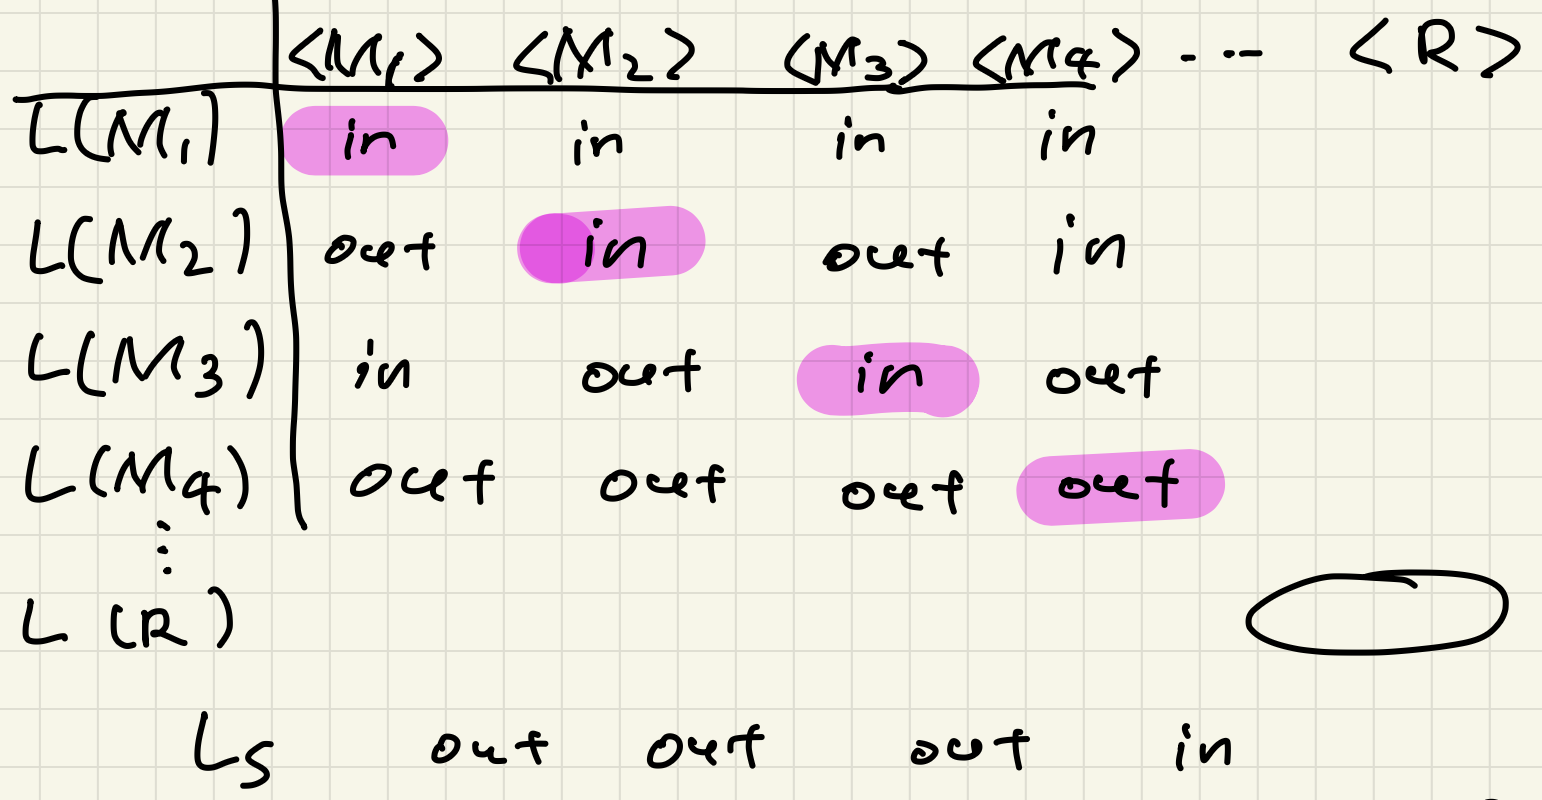 <M₁> <M₂> <M₃> <M₄> --- <R>
L(M₁) in in in in
L(M₂) out in out in
L(M₃) in out in out
L(M₄) out out out out
⋮
L(R)
Ls out out out in